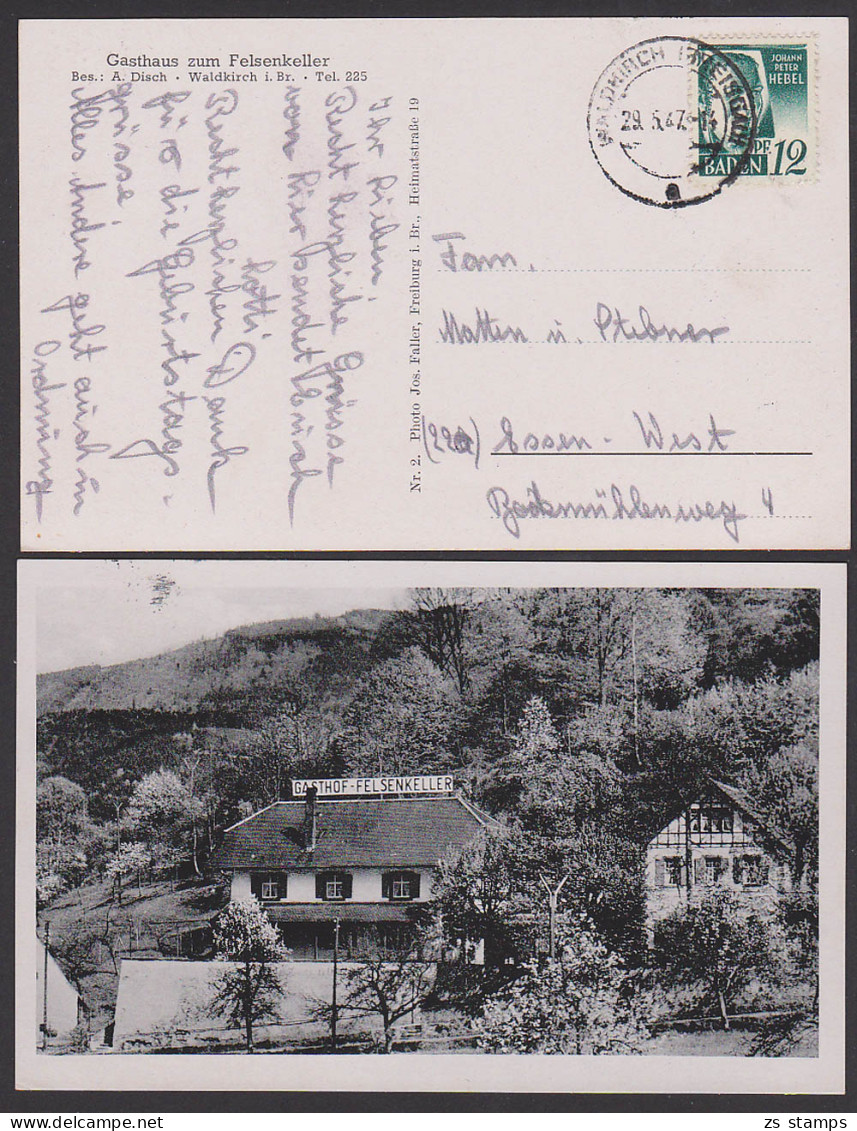 Gasthaus zum Felsenkeller
Bes.: A. Disch · Waldkirch i. Br. · Tel. 225
Ihr Lieben
Recht herzliche Grüsse
von hier sendet Euch
Lotti.
Recht herzlichen Dank
für die Geburtstags-
grüsse!
Alles Andre geht auch in
Ordnung
Nr. 2. Photo Jos. Faller, Freiburg i. Br., Heimatstraße 19
WALDKIRCH (BREISGAU)
29. 5.47.
a
JOHANN
PETER
HEBEL
PF
BADEN 12
Fam.
Matten u. Stebner
(22a) Essen-West
Bockmühlenweg 4
GASTHOF-FELSENKELLER
zs stamps